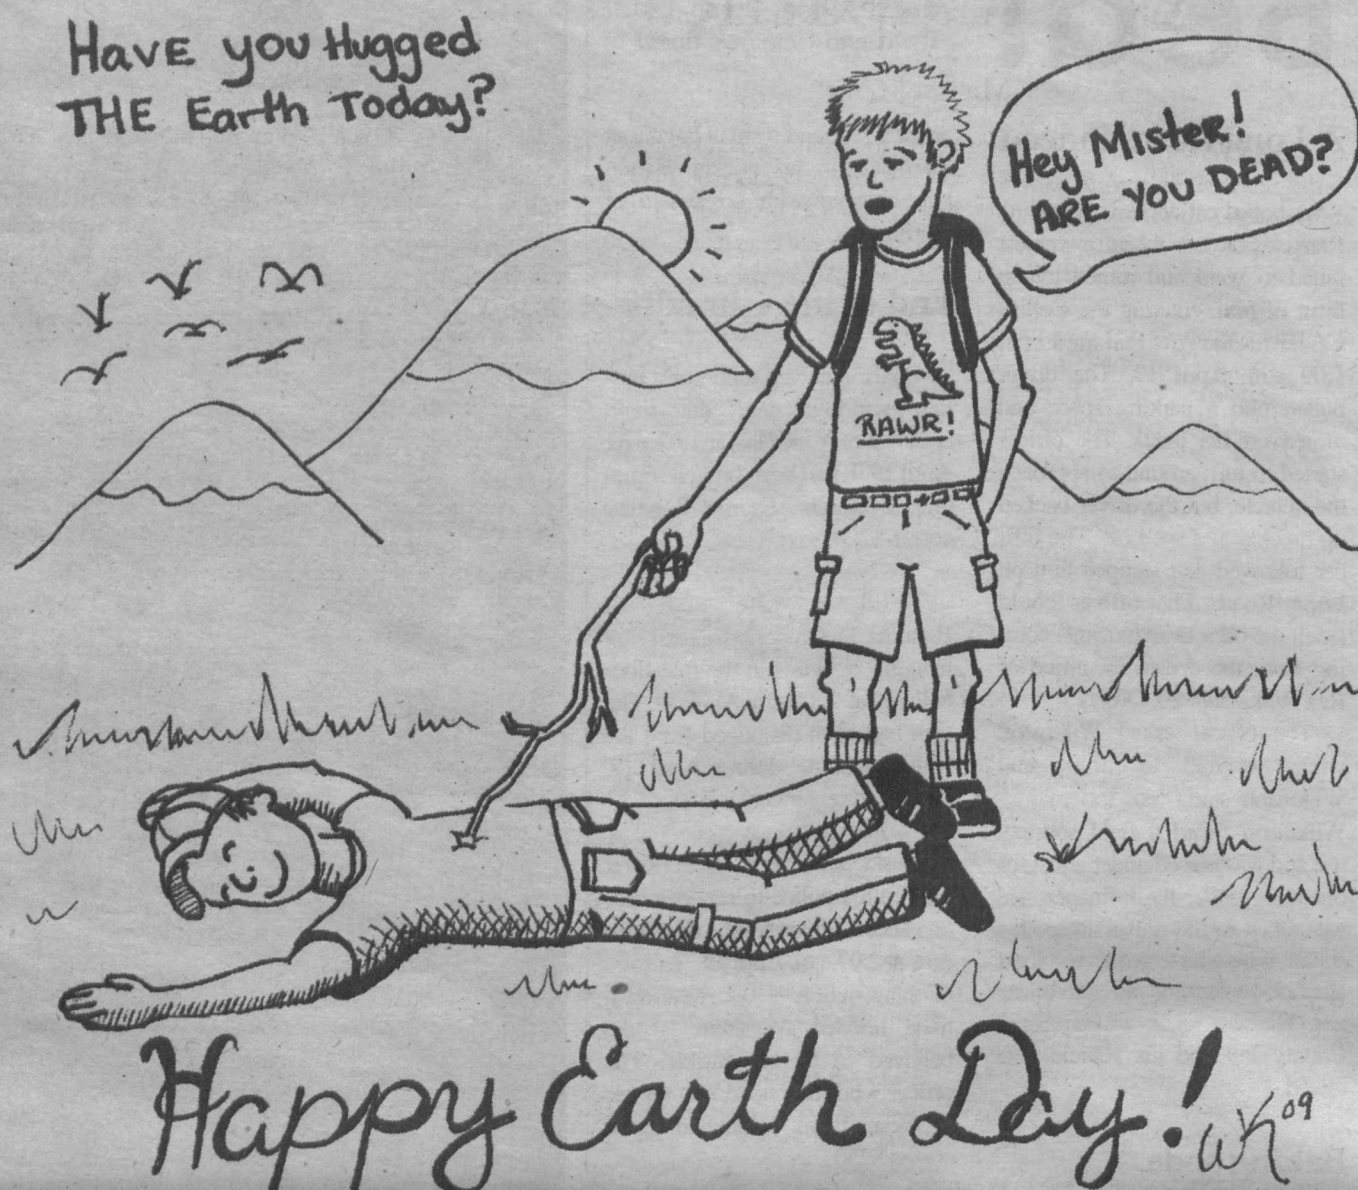 HAVE you Hugged
THE Earth Today?
Hey Mister!
ARE YOU DEAD?
RAWR!
Happy Earth Day!
09